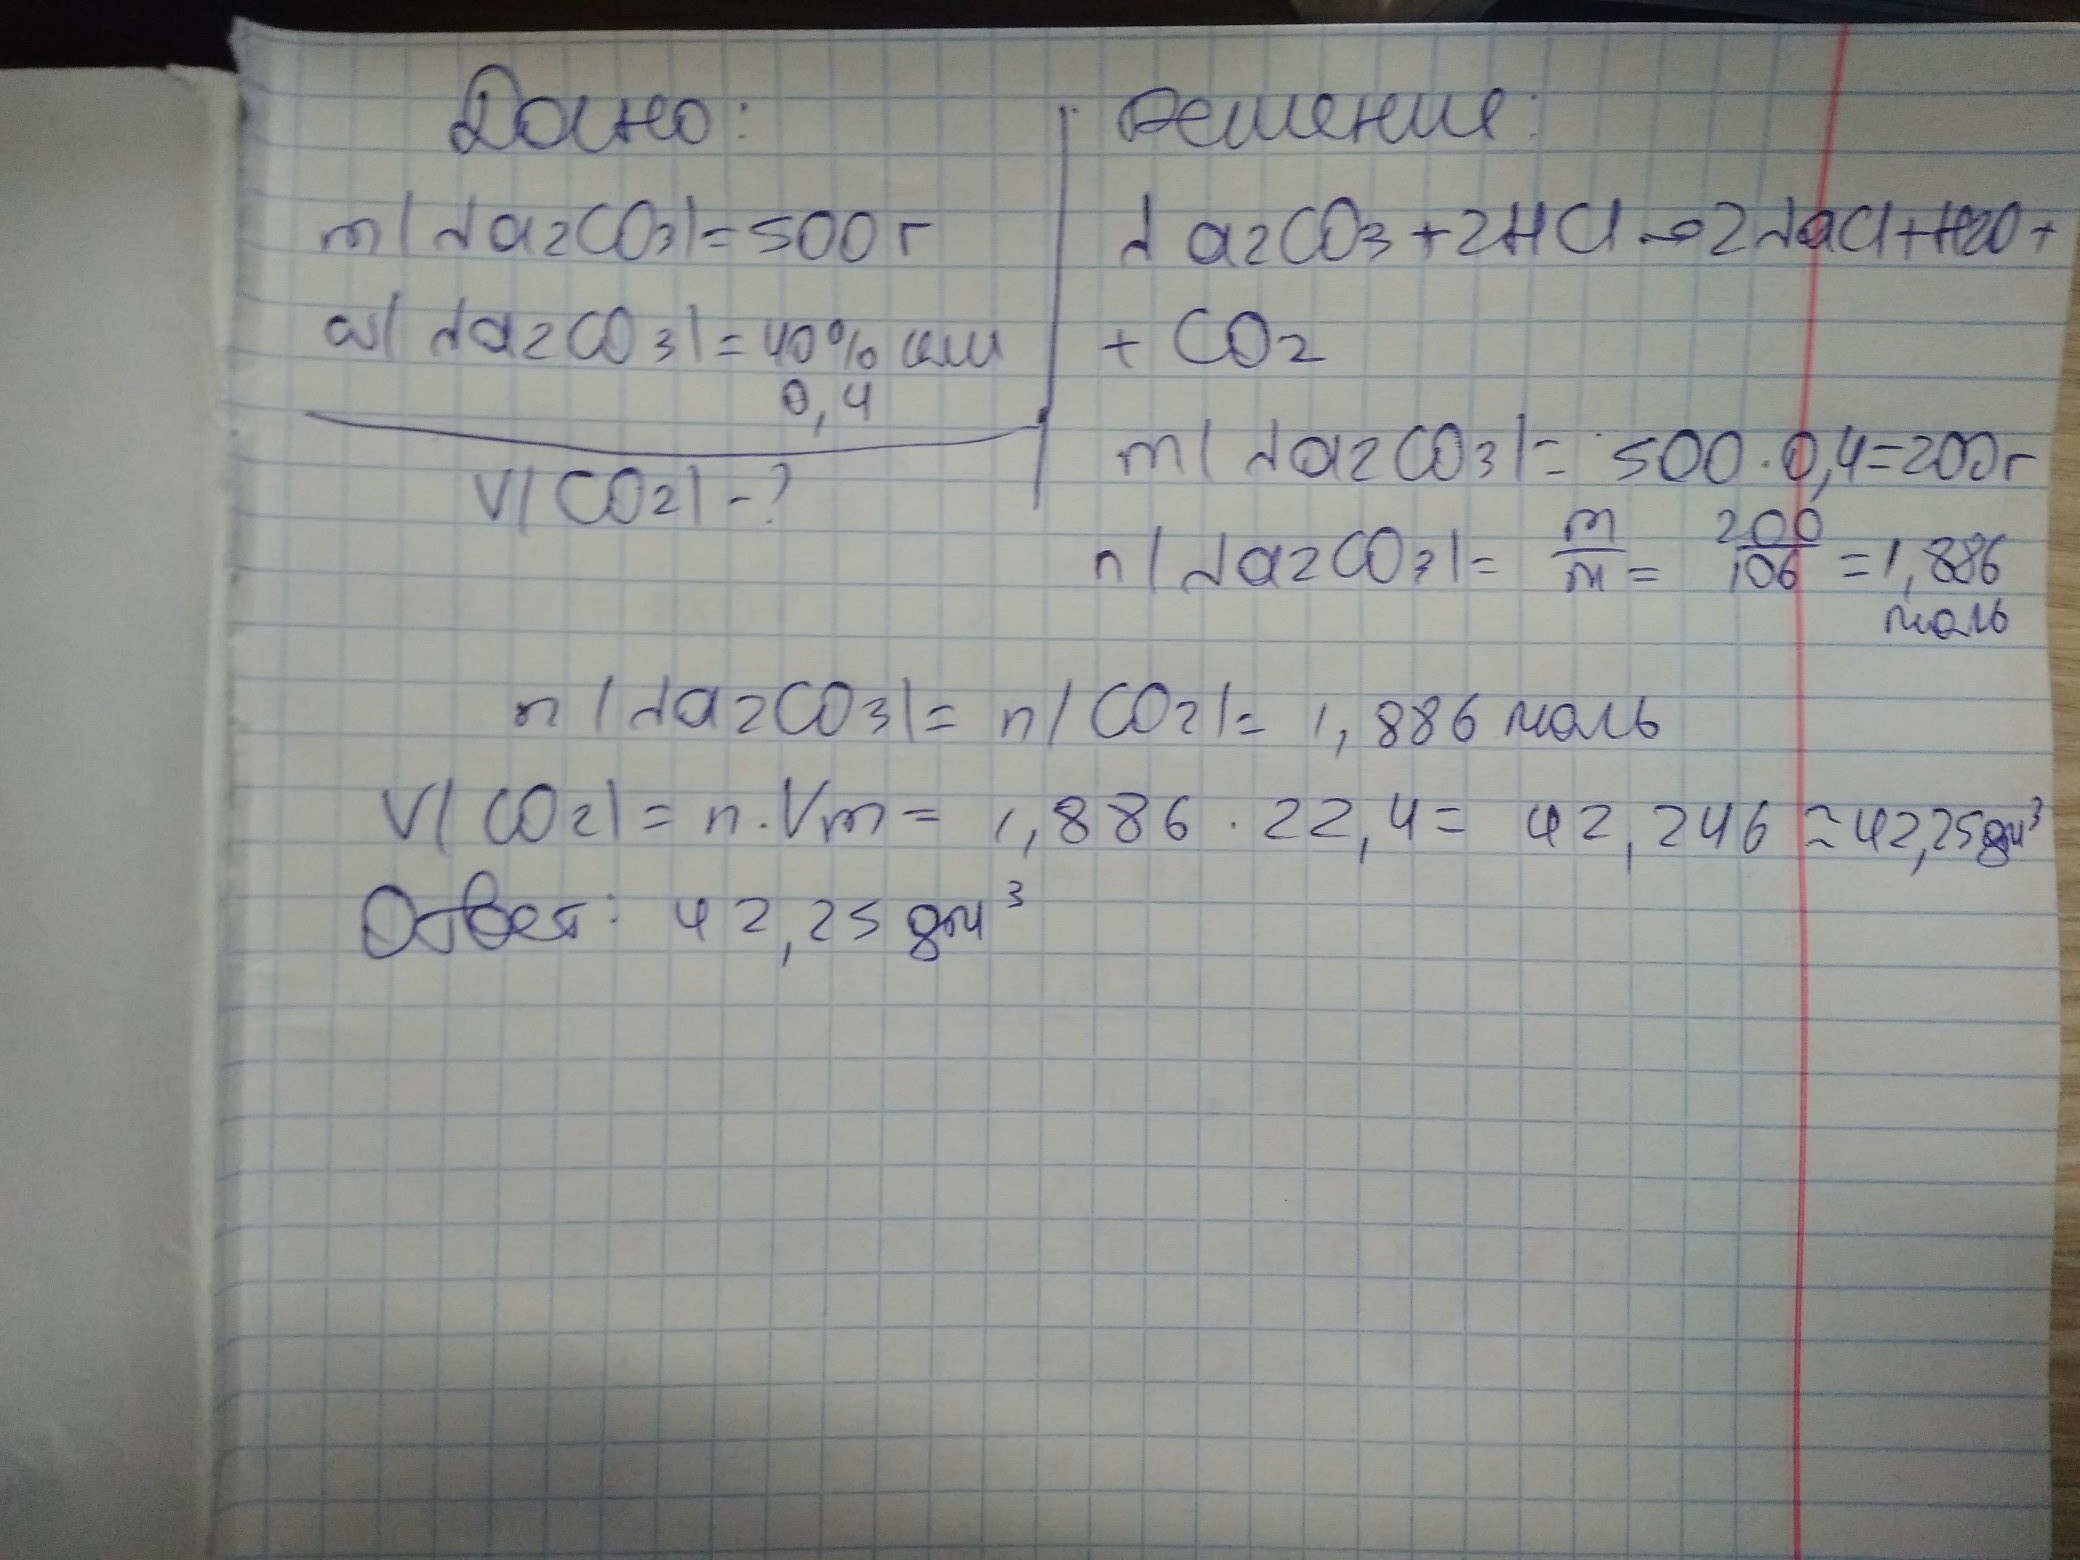 Дано:
m(Na2CO3)=500г
w(Na2CO3)=40% или
0,4
V(CO2)-?
Решение:
Na2CO3+2HCl→2NaCl+H2O+
+CO2
m(Na2CO3)=500·0,4=200г
n(Na2CO3)=m/M=200/106=1,886
моль
n(Na2CO3)=n(CO2)=1,886 моль
V(CO2)=n·Vm=1,886·22,4=42,246≈42,25дм³
Ответ: 42,25 дм³